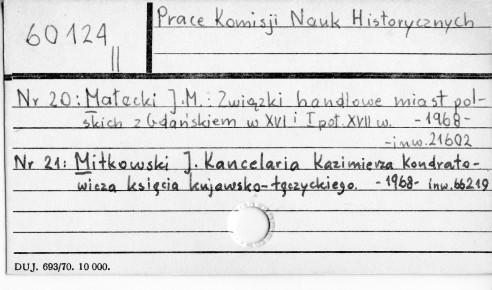 60124
II
Prace Komisji Nauk Historycznych
Nr 20: Małecki J.M.: Związki handlowe miast pol-
skich z Gdańskiem w XVI i I poł. XVII w. - 1968 -
- inw. 21602
Nr 21: Mitkowski J. Kancelaria Kazimierza Kondrato-
wicza księcia kujawsko-łęczyckiego. - 1968 - inw. 66219
DUJ. 693/70. 10 000.